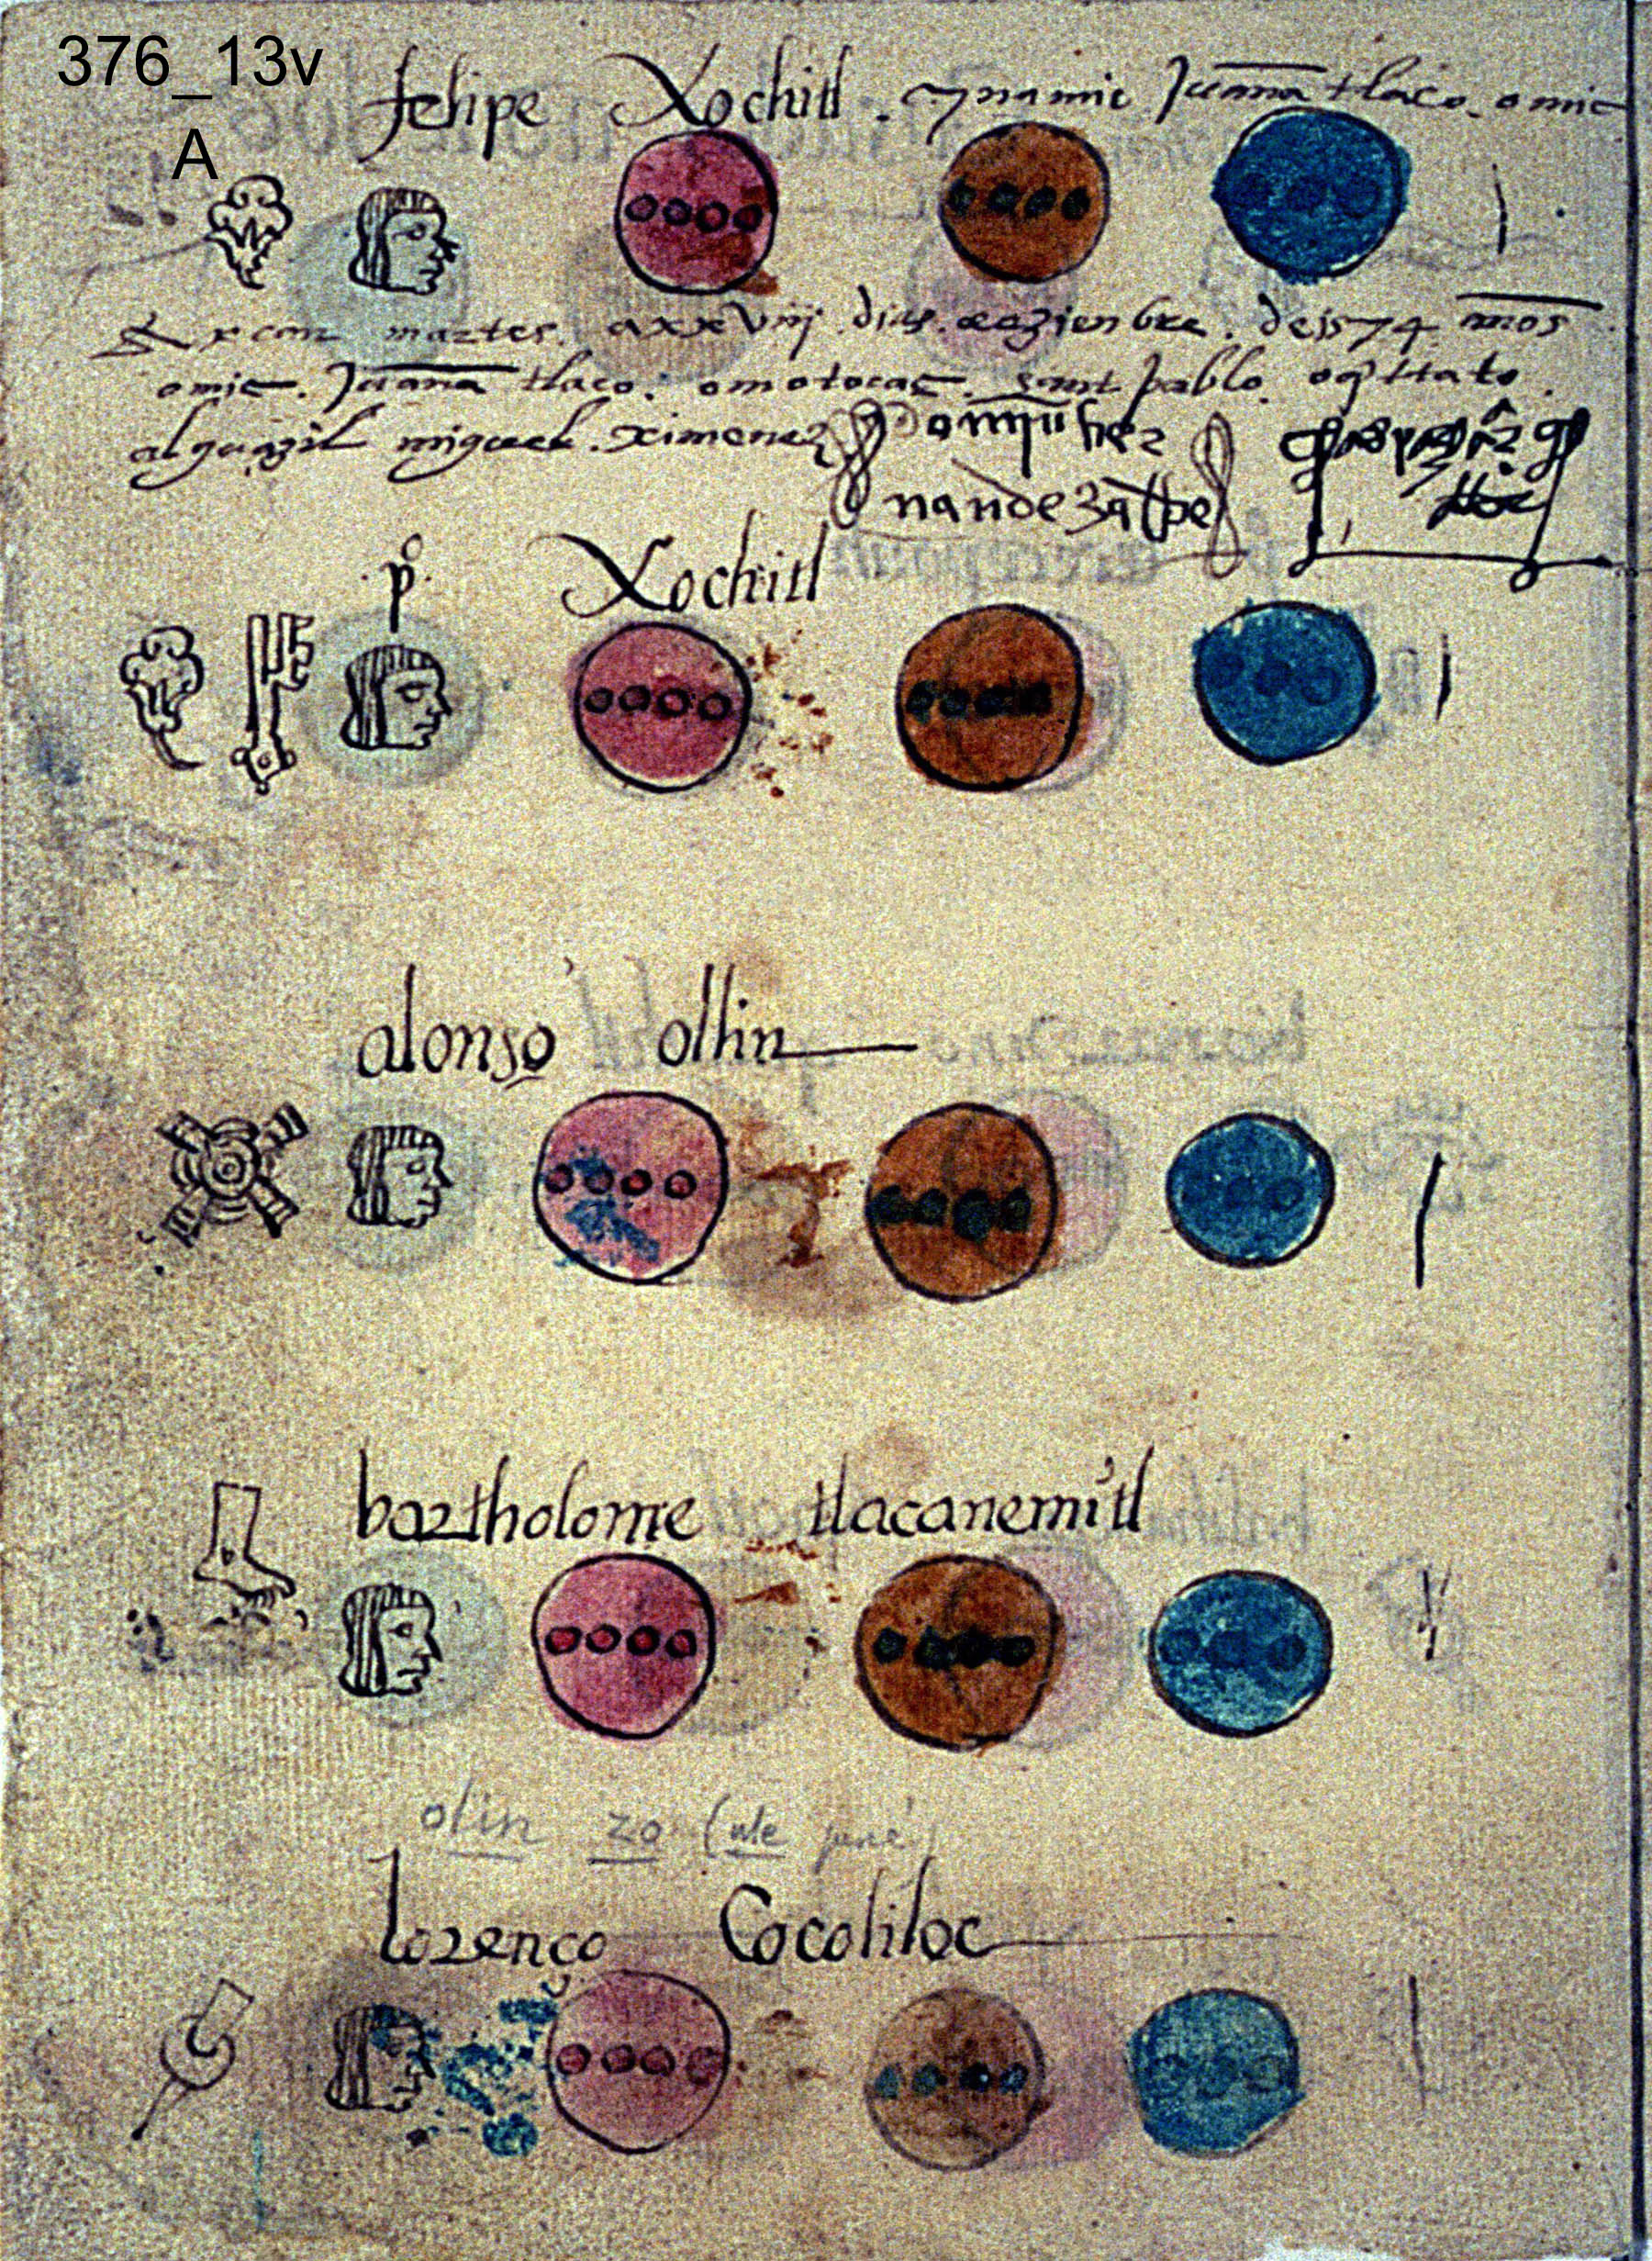 376_13v
A
felipe Xochitl . ynamic Juana tlaco. omic
martes. axxviij dias. dezienbre. de 1574 años
omic. Juana tlaco. omotocac. sant pablo. oqittato
alguazil miguel. ximenez
p^o Xochitl
alonso ollin
bartholome tlacanemitl
olin zo
lorenço Cocoliloc